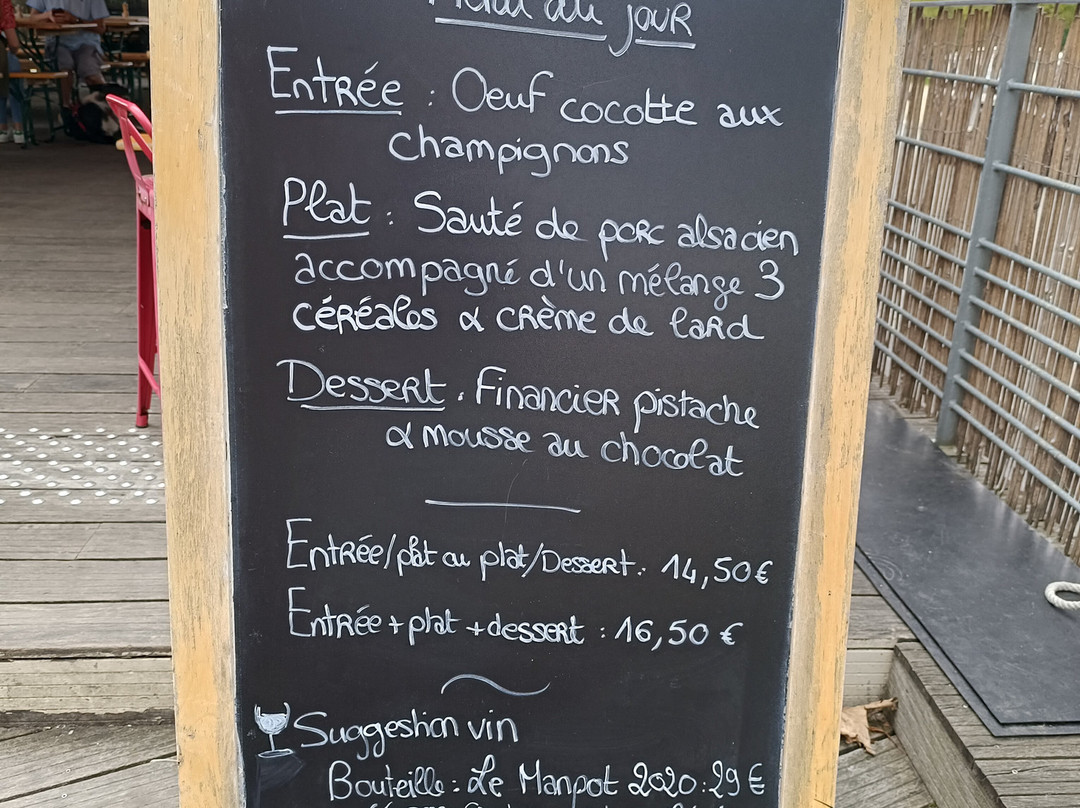 Menu du jour
Entrée : Oeuf cocotte aux
champignons
Plat : Sauté de porc alsacien
accompagné d'un mélange 3
céréales & crème de lard
Dessert . Financier pistache
& mousse au chocolat
Entrée/plat ou plat/Dessert : 14,50 €
Entrée + plat + dessert : 16,50 €
Suggestion vin
Bouteille : Le Manpot 2020 : 29 €